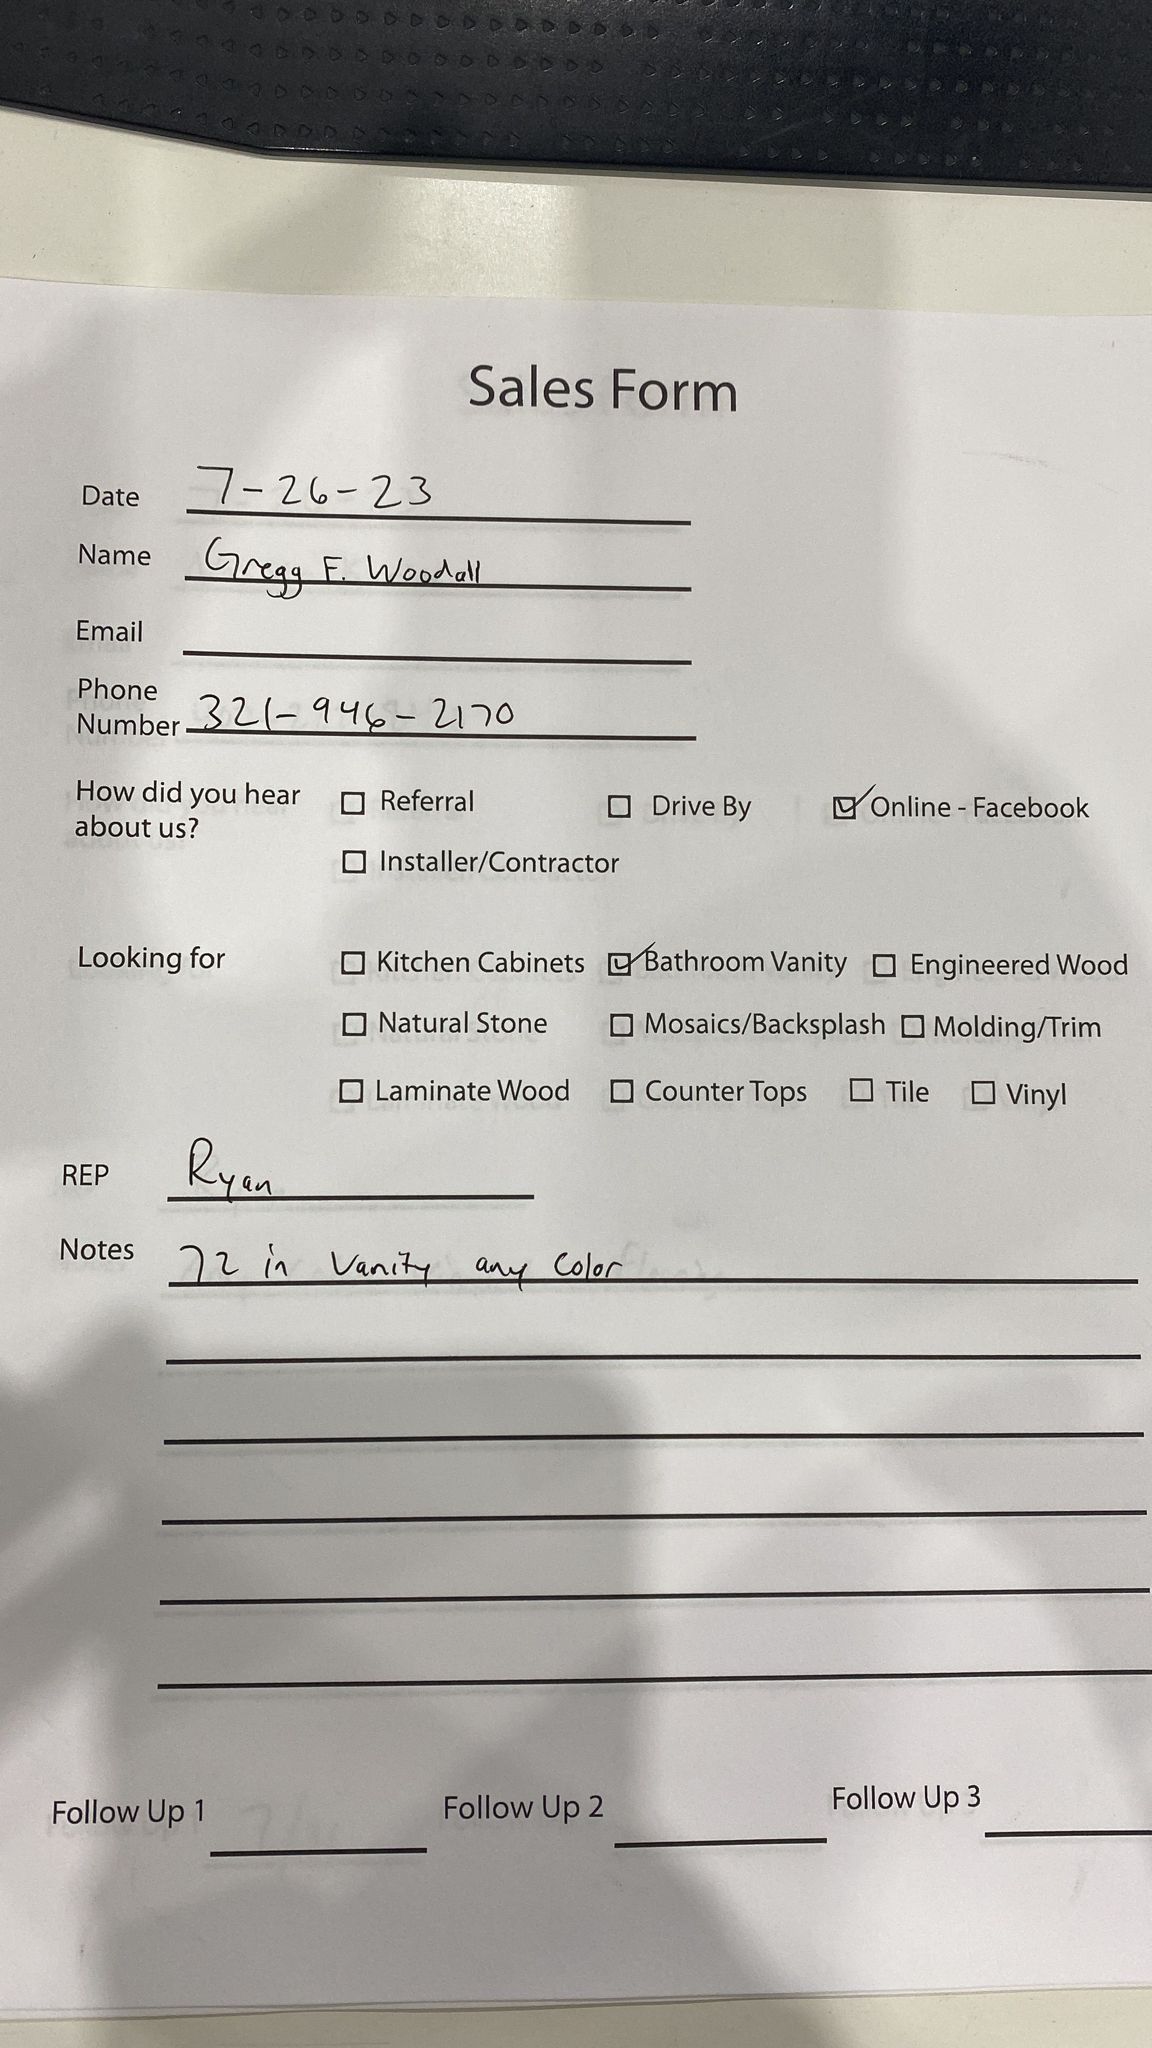 Sales Form
Date 7-26-23
Name Gregg F. Woodall
Email
Phone
Number 321-946-2170
How did you hear
about us?
Referral Drive By Online - Facebook
Installer/Contractor
Looking for Kitchen Cabinets Bathroom Vanity Engineered Wood
Natural Stone Mosaics/Backsplash Molding/Trim
Laminate Wood Counter Tops Tile Vinyl
REP Ryan
Notes 72 in Vanity any color
Follow Up 1 Follow Up 2 Follow Up 3